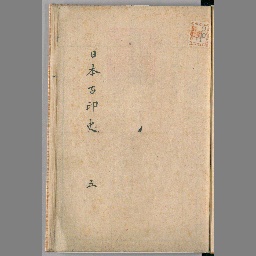 日本古印史 五